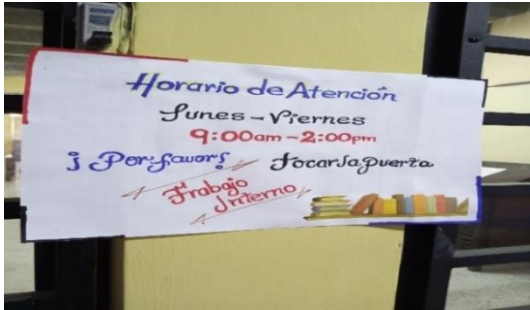 Horario de Atención
Lunes - Viernes
9:00am - 2:00pm
¡ Por favor! Tocar la puerta
Trabajo
Interno